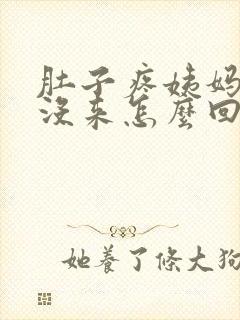 肚子疼姨妈
没来怎麼回
她養了條大狗